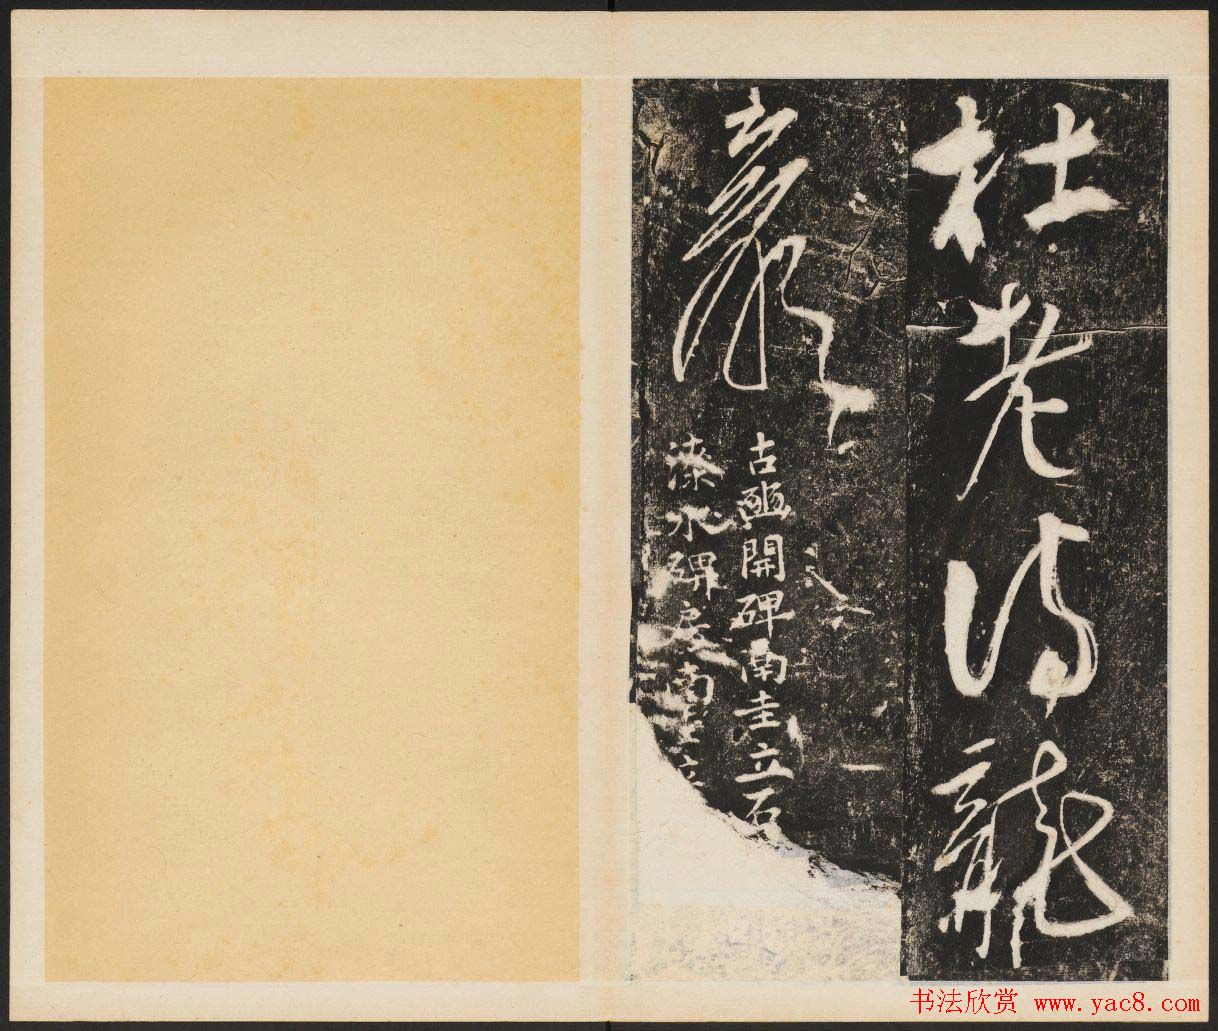 杜老得龍
古開碑南圭立石
水碑房南圭立
书法欣赏 www.yac8.com